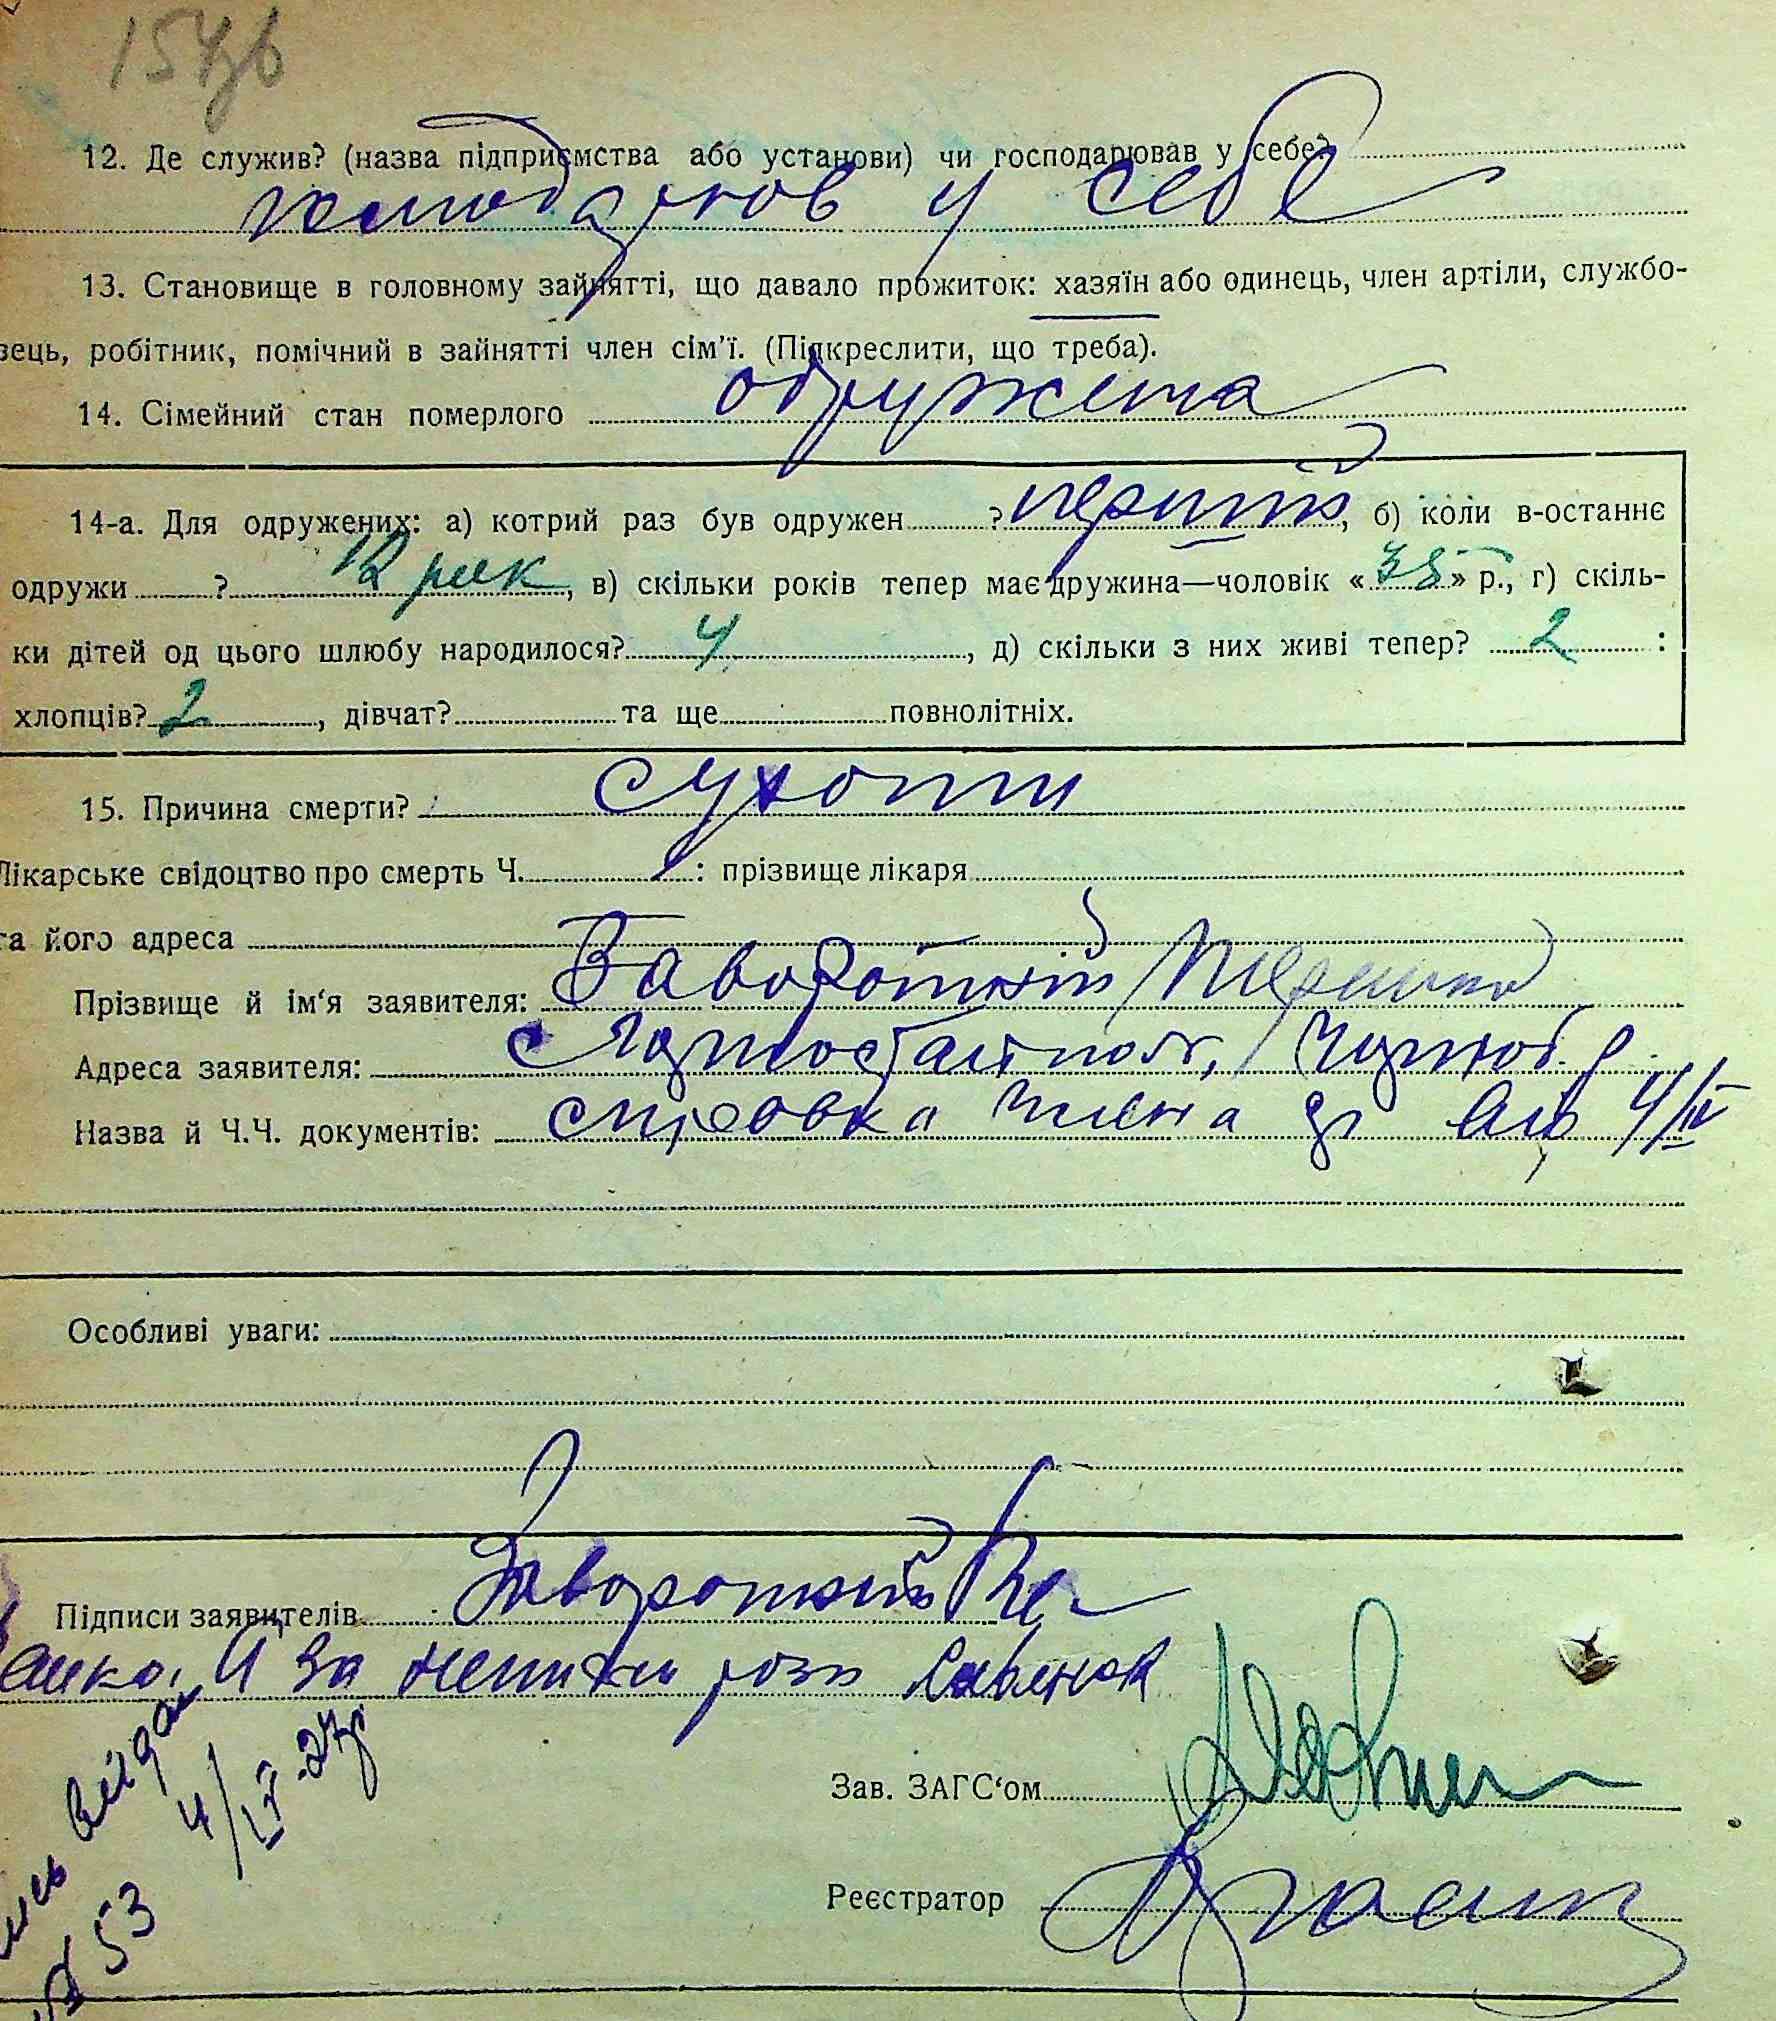 154зв
12. Де служив? (назва підприємства або установи) чи господарював у себе?
господарював у себе
13. Становище в головному зайнятті, що давало прожиток: хазяїн або одинець, член артіли, службо-
вець, робітник, помічний в зайнятті член сім'ї. (Підкреслити, що треба).
14. Сімейний стан померлого одружена
14-а. Для одружених: а) котрий раз був одружен ? перший, б) коли в-останнє
одружи ? 12 рик, в) скільки років тепер має дружина—чоловік «38» р., г) скіль-
ки дітей од цього шлюбу народилося? 4, д) скільки з них живі тепер? 2 :
хлопців? 2, дівчат? та ще повнолітніх.
15. Причина смерти? сухоти
Лікарське свідоцтво про смерть Ч. : прізвище лікаря
та його адреса
Прізвище й ім'я заявителя: Заворотній
Адреса заявителя: с
Назва й Ч.Ч. документів: справка члена 4/IV
Особливі уваги:
Підписи заявителів Заворотній
за
видан
4/IV-27р
53
Зав. ЗАГС'ом
Реєстратор